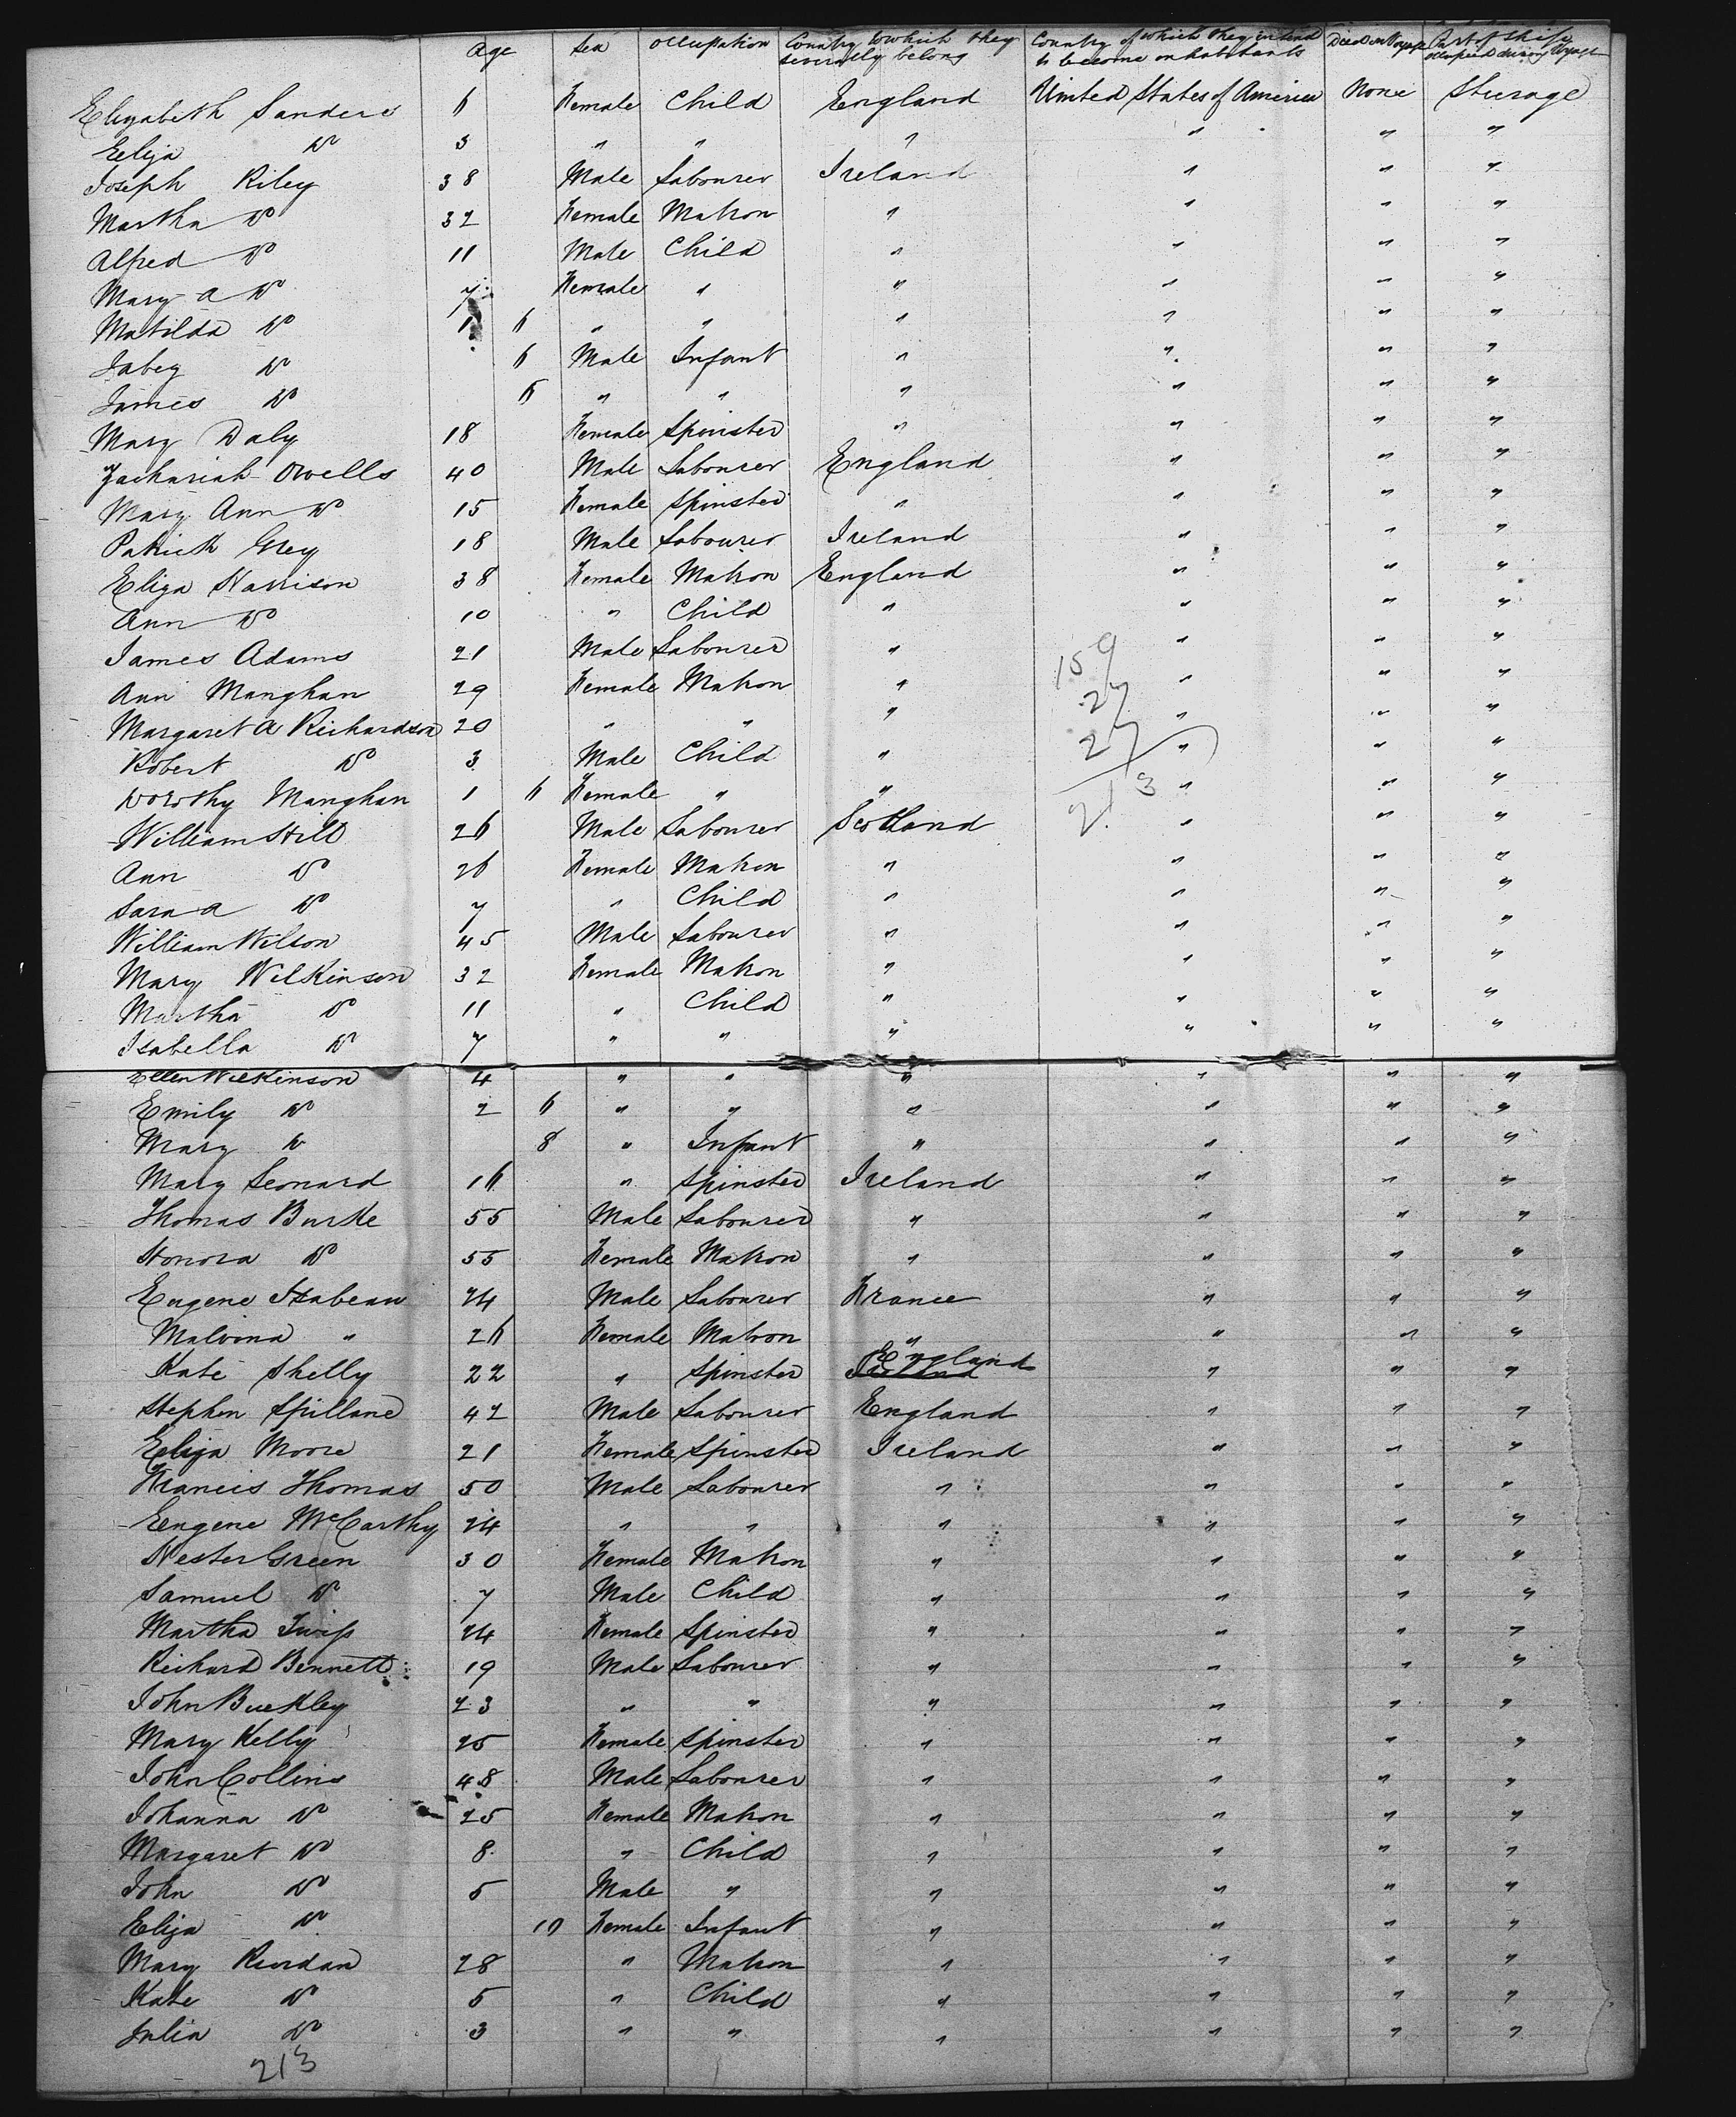 Age Sex Occupation Country to which they severally belong Country of which they intend to become inhabitants Died on Voyage Part of Ship occupied during Voyage
Elizabeth Sanders 6 Female Child England United States of America None Steerage
Eliza Do 3 " " " " " "
Joseph Riley 38 Male Labourer Ireland " " "
Martha Do 32 Female Matron " " " "
Alfred Do 11 Male Child " " " "
Mary A Do 7 Female " " " " "
Matilda Do 1 6 " " " " " "
Jabez Do 6 Male Infant " " " "
James Do 6 " " " " " "
Mary Daly 18 Female Spinster " " " "
Zachariah Owells 40 Male Labourer England " " "
Mary Ann Do 15 Female Spinster " " " "
Patrick Grey 18 Male Labourer Ireland " " "
Eliza Harrison 38 Female Matron England " " "
Ann Do 10 " Child " " " "
James Adams 21 Male Labourer " " " "
Ann Manghan 29 Female Matron " " " "
Margaret A Richardson 20 " " " " " "
Robert Do 3 Male Child " " " "
Dorothy Manghan 1 6 Female " " " " "
159
27
27
213
William Hill 26 Male Labourer Scotland " " "
Ann Do 26 Female Matron " " " "
Sara A Do 7 " Child " " " "
William Wilson 45 Male Labourer " " " "
Mary Wilkinson 32 Female Matron " " " "
Martha Do 11 " Child " " " "
Isabella Do 7 " " " " " "
Ellen Wilkinson 4 " " " " " "
Emily Do 2 6 " " " " " "
Mary Do 8 " Infant " " " "
Mary Leonard 16 " Spinster Ireland " " "
Thomas Burke 55 Male Labourer " " " "
Honora Do 55 Female Matron " " " "
Eugene Isabeau 24 Male Labourer France " " "
Malvina " 26 Female Matron " " " "
Kate Shelly 22 " Spinster Ireland England " " "
Stephen Spillane 42 Male Labourer England " " "
Eliza Moore 21 Female Spinster Ireland " " "
Francis Thomas 50 Male Labourer " " " "
Eugene McCarthy 24 " " " " " "
Hester Green 30 Female Matron " " " "
Samuel Do 7 Male Child " " " "
Martha Twiss 24 Female Spinster " " " "
Richard Bennett 19 Male Labourer " " " "
John Buckley 23 " " " " " "
Mary Kelly 25 Female Spinster " " " "
John Collins 48 Male Labourer " " " "
Johanna Do 25 Female Matron " " " "
Margaret Do 8 " Child " " " "
John Do 5 Male " " " " "
Eliza Do 10 Female Infant " " " "
Mary Riordan 28 " Matron " " " "
Kate Do 5 " Child " " " "
Julia Do 3 " " " " " "
213